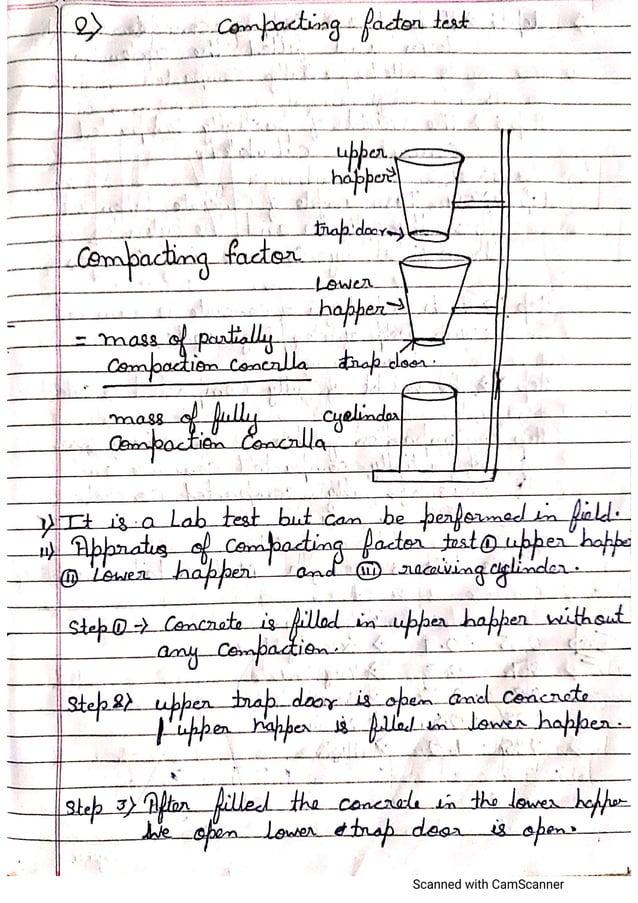 2) Compacting factor test
upper
happer
trap door
Compacting factor
Lower
happer
= mass of partially
Compaction Concrlla
trap door.
mass of fully
Compaction Concrlla
cyelinder
i) It is a Lab test but can be performed in field.
ii) Appratus of Compacting factor test ① upper happe
ⓘⓘ Lower happer and ⓘⓘⓘ receiving cylinder.
Step ① → Concrete is filled in upper happer without
any Compaction.
Step 2) upper trap door is open and Concrete
upper happer is filled in lower happer.
Step 3) After filled the concrete in the lower happer
We open lower trap door is open.
Scanned with CamScanner